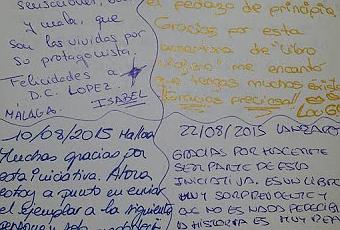 sensaciones, buena
y mala, que
son las vividas por
su protagonista.
Felicidades a
D.C. LOPEZ.
ISABEL
MÁLAGA.
el pedazo de principio.
Gracias por esta
aventura de "libro
viajero" me encantó
que tengas muchos éxitos
preciosa!
10/08/2015 Mallorca
Muchas gracias por
esta iniciativa. Ahora
estoy a punto en enviar
el ejemplar a la siguiente
persona y
22/08/2015 LANZAROTE
GRACIAS POR HACERME
SER PARTE DE ESTA
INICIATIVA. ES UN LIBRO
MUY SORPRENDENTE Y
QUE NO ES NADA PREDECIBLE
LA HISTORIA ES MUY REAL